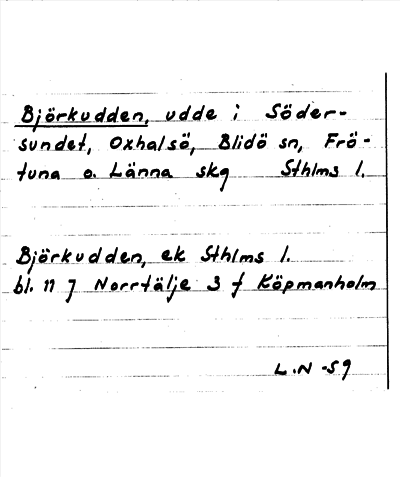 Björkudden, udde i Söder-
sundet, Oxhalsö, Blidö sn, Frö-
tuna o. Länna skg Sthlms l.
Björkudden, ek Sthlms l.
bl. 11 7 Norrtälje 3 f Köpmanholm
L.N -59